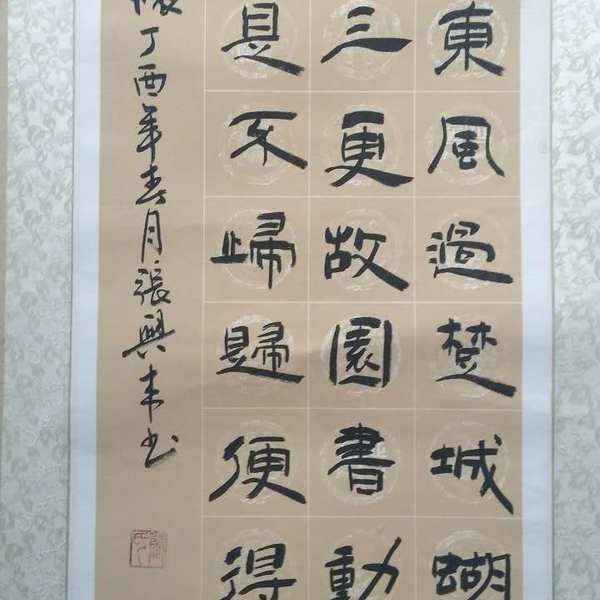 東風過楚城蝴
三更故園書動
是不歸歸便得
丁酉年春月張興来书